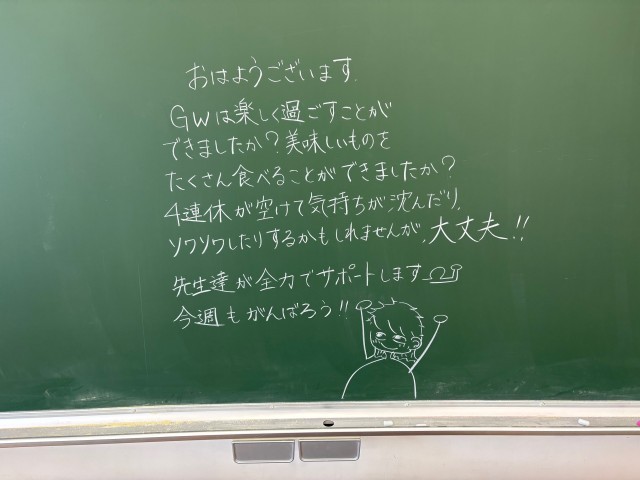 おはようございます.
GWは楽しく過ごすことが
できましたか?美味しいものを
たくさん食べることができましたか?
4連休が空けて気持ちが沈んだり,
ソワソワしたりするかもしれませんが,大丈夫!!
先生達が全力でサポートします
今週もがんばろう!!